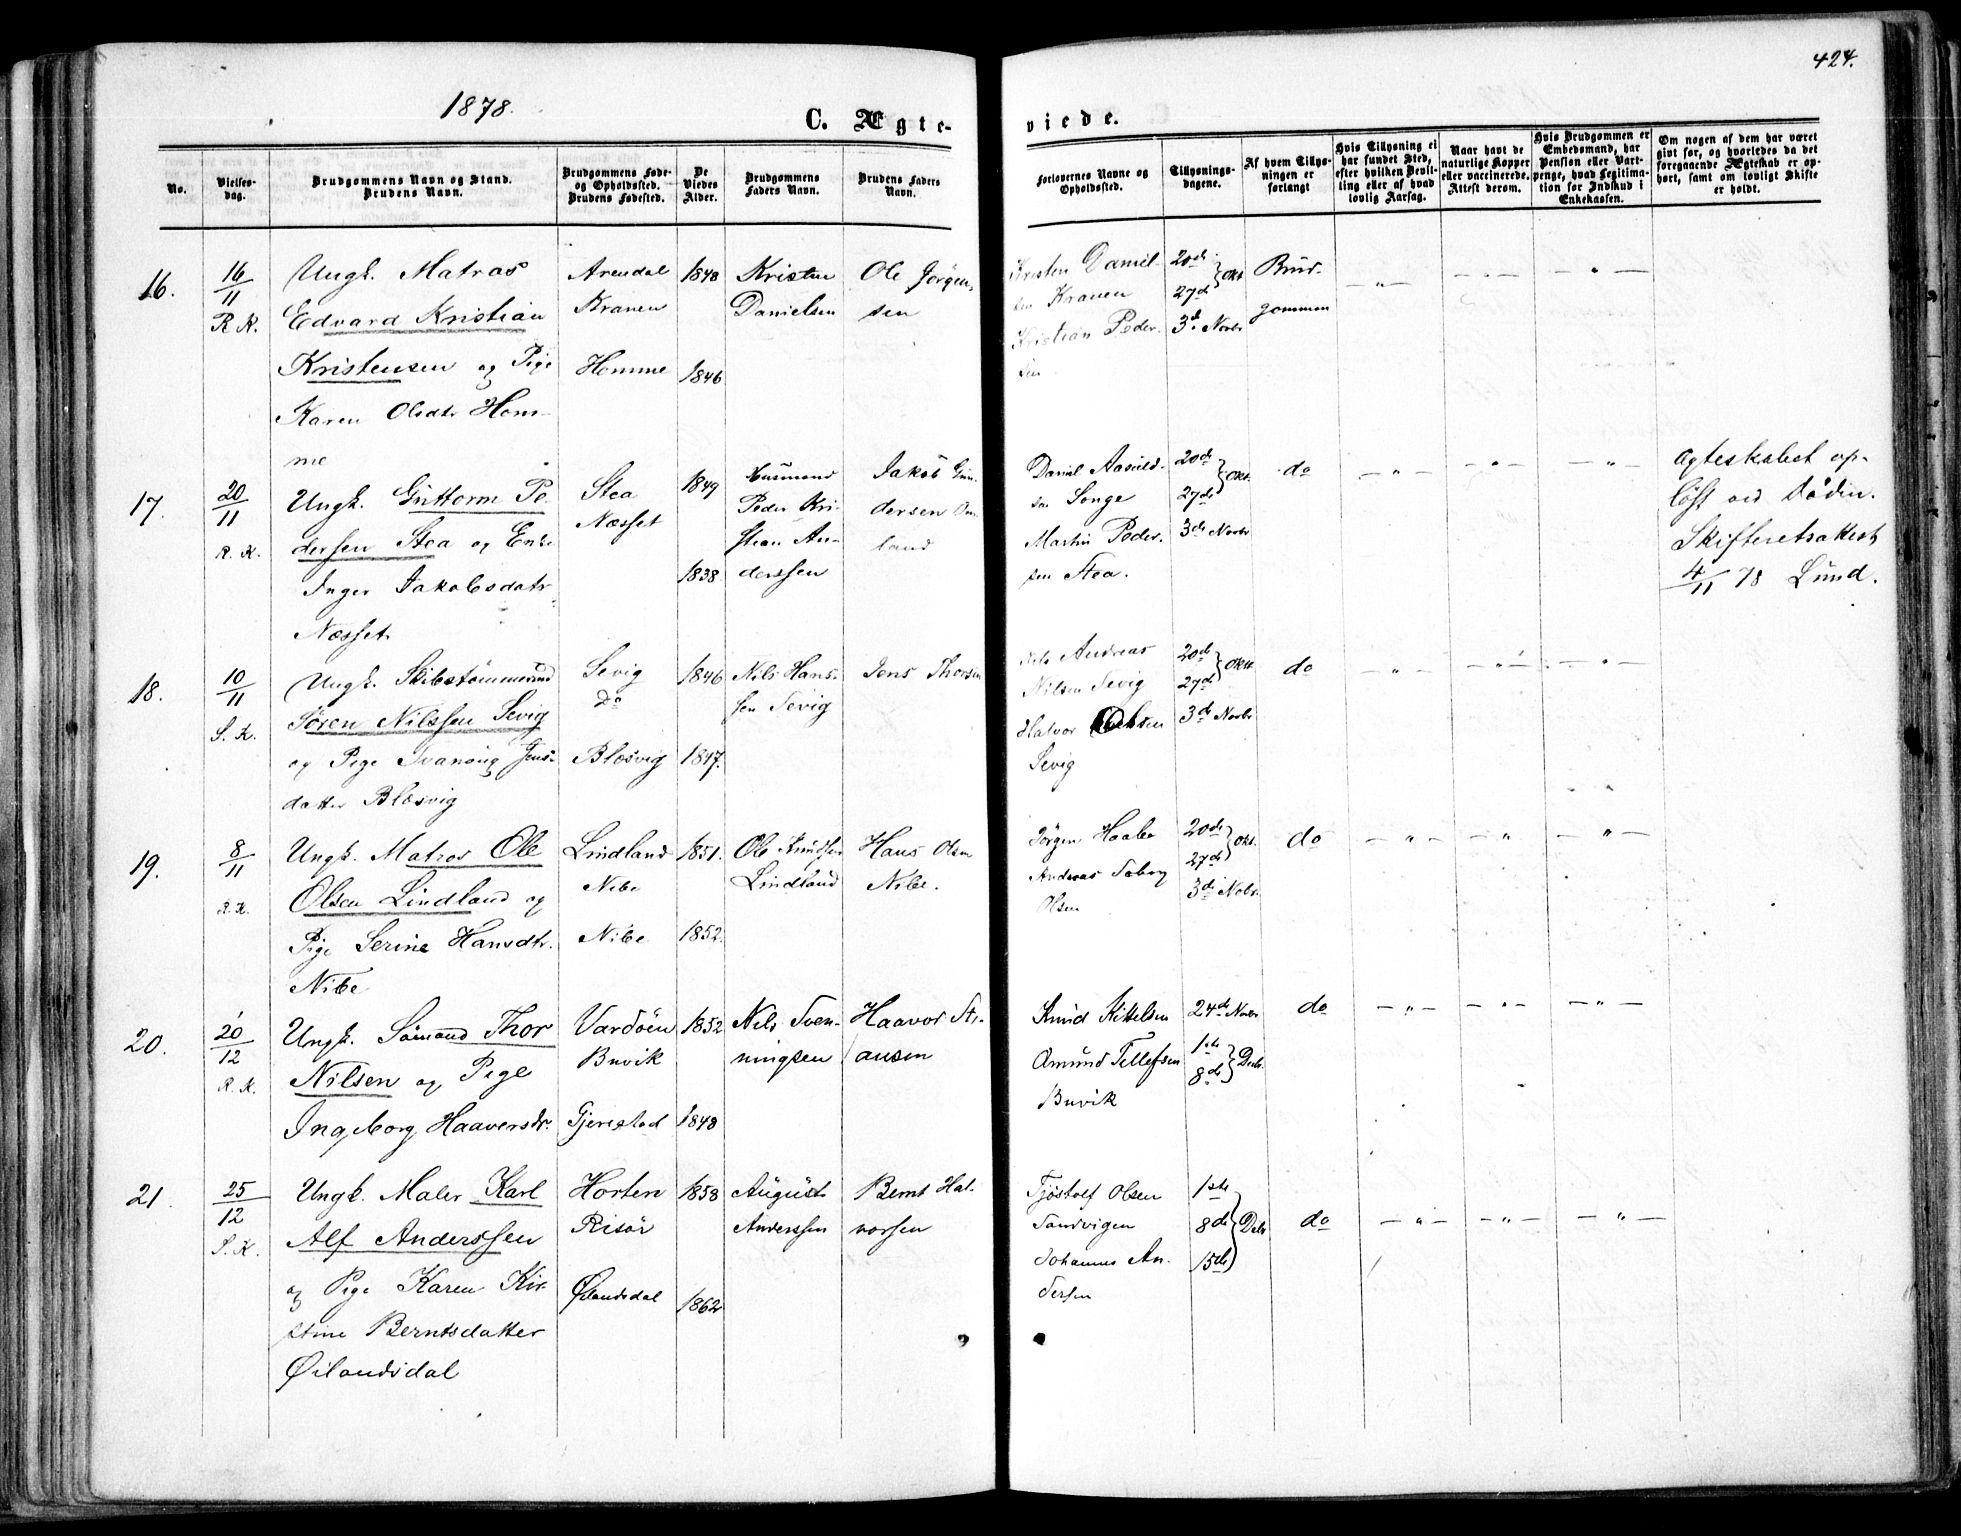 424.
1878.
C. Ægte-
viede.
No.
Vielses-
dag.
Brudgommens Navn og Stand.
Brudens Navn.
Brudgommens Føde-
og Opholdssted.
Brudens Fødested.
De
Viedes
Alder.
Brudgommens
Faders Navn.
Brudens Faders
Navn.
Forlovernes Navne og
Opholdssted.
Tillysnings-
dagene.
Af hvem Tillys-
ningen er
forlangt
Hvis Tillysning ei
har fundet Sted,
efter hvilken Bevil-
ling eller af hvad
lovlig Aarsag.
Naar havt de
naturlige Kopper
eller vaccinerede.
Attest derom.
Hvis Brudgommen er
Embedsmand, har
Pension eller Vart-
penge, hvad Legitima-
tion for Indskud i
Enkekassen.
Om nogen af dem har været
givt før, og hvorledes da det
foregaaende Ægteskab er op-
hørt, samt om lovligt Skifte
er holdt.
16.
16/11
R. K.
Ungk. Matros
Edvard Kristian
Kristensen og Pige
Karen Olsdtr Hom-
me
Arendal
Kranen
Homme
1848
1846
Kristen
Danielsen
Ole Jørgen-
sen
Kristen Daniel-
sen Kranen
Kristian Peder-
sen
20de
27de } Okt
3de Novbr
Brud-
gommen
— „ —
— „ —
— „ —
17.
20/11
R. K.
Ungk. Guttorm Pe-
dersen Stea og Enke
Inger Jakobsdatr
Næsset
Stea
Næsset
1849
1838
Husmand
Peder Kri-
stian An-
derssen
Jakob Gun-
dersen
land
Daniel
sen Songe
Martin Peder-
sen Stea.
20de
27de } Okt.
3de Novbr
do
— „ —
— „ —
— „ —
Ægteskabet op-
løst ved Døden.
Skifteretsattest
4/11 78 Lund.
18.
10/11
S. K.
Ungk. Skibstømmermd
Søren Nilssen Sevig
og Pige Jens-
datter Blæsvig
Sevig
Do
Blæsvig
1846
1847.
Nils Hans-
sen Sevig
Jens Thorsen
Nils Andreas
Nilsen Sevig
Halvor
Sevig
20de
27de } Oktr
3de Novbr
do
— „ —
— „ —
— „ —
19.
8/11
R. K.
Ungk. Matros Ole
Olsen Lindland og
Pige Serine Hansdtr.
Nibe
Lindland
Nibe
Nibe
1851.
1852.
Ole Knudsen
Lindland
Hans Olsen
Nibe.
Jørgen Haabe
Andreas
Olsen
20de
27de } Okt.
3de Nobr.
do
— „ —
— „ —
— „ —
20.
20/12
R. K.
Ungk. Sømand Thor
Nilsen og Pige
Ingeborg Haaversdr.
Vardöen
Buvik
Gjerestad
1852
1848
Nils Sven-
ningsen
Haavor
ansen
Knud Kittelsen
Amund Tellefsen
Buvik
24de Novbr
1ste
8de } Decbr.
do
— „ —
— „ —
— „ —
21.
25/12
S. K.
Ungk. Maler Karl
Alf Anderssen
og Pige Karen Kir-
stine Berntsdatter
Øilandsdal
Horten
Risör
Øilandsdal
1858
1862
August
Anderssen
Bernt Hal-
vorsen
Tjöstolf Olsen
Sandvigen
Johannes An-
dersen
1ste
8de } Debr
15de
do
— „ —
— „ —
— „ —